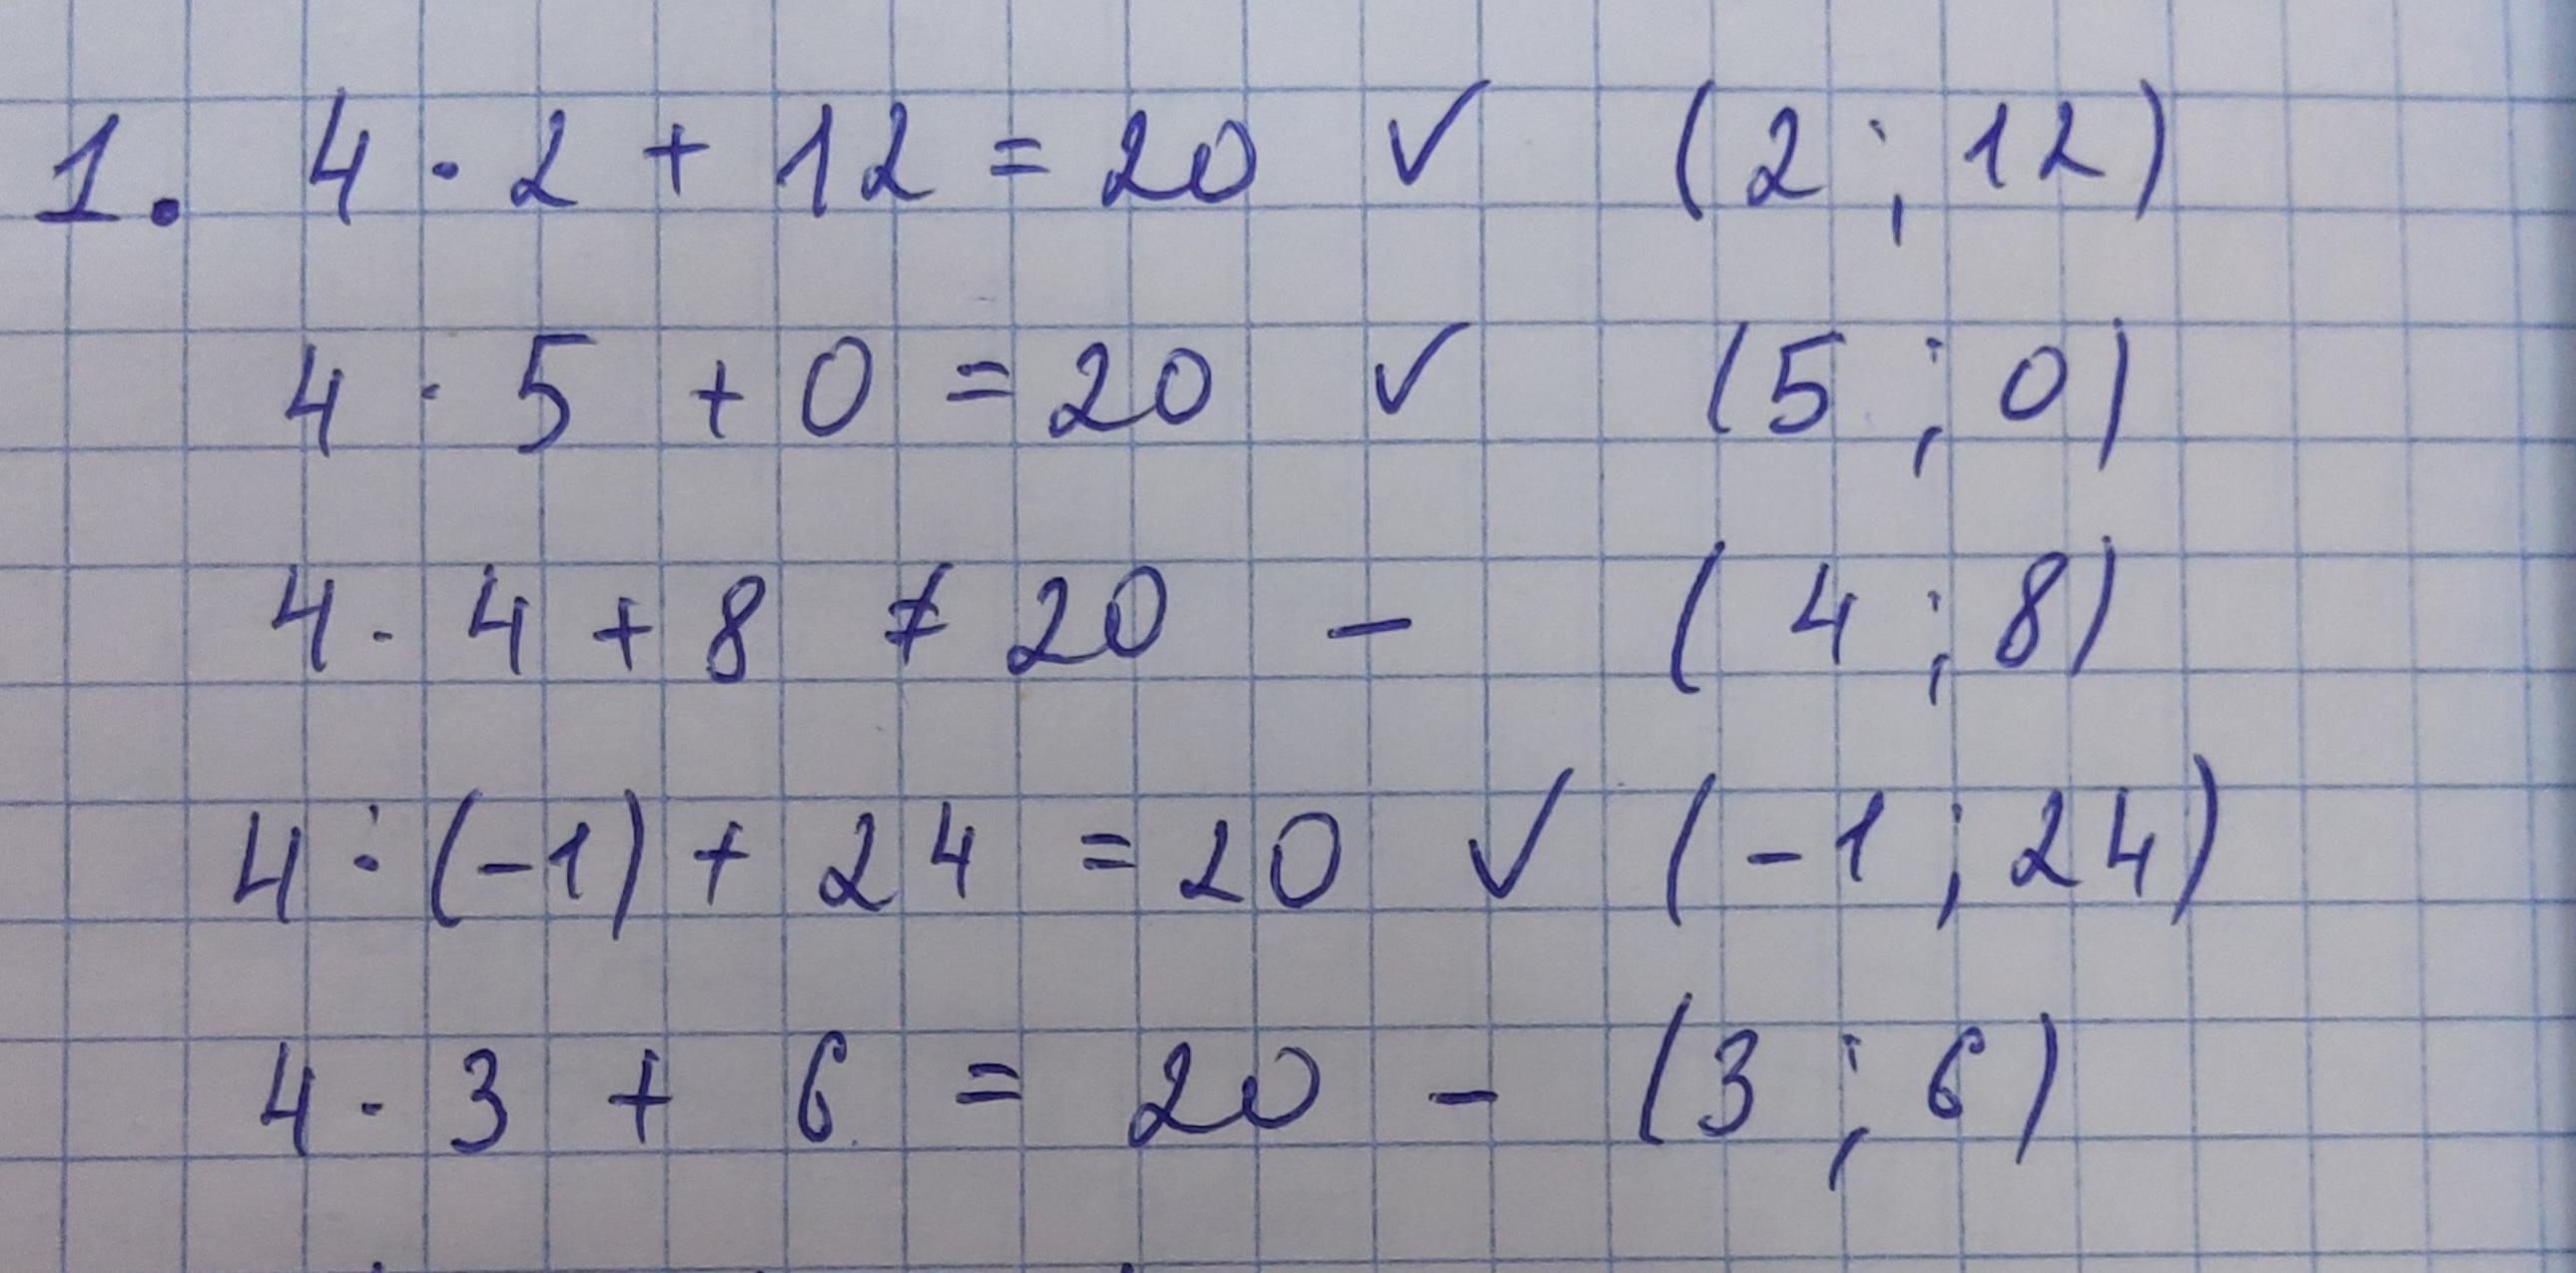 1. 4 · 2 + 12 = 20 ✓ (2 ; 12)
4 · 5 + 0 = 20 ✓ (5 ; 0)
4 · 4 + 8 ≠ 20 – (4 ; 8)
4 : (-1) + 24 = 20 ✓ (-1 ; 24)
4 · 3 + 6 = 20 – (3 ; 6)